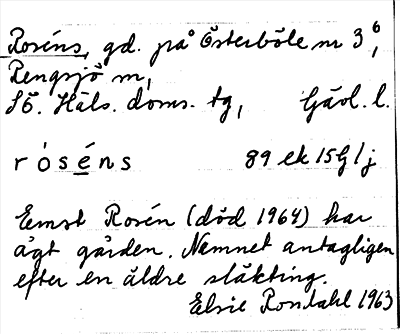 Roséns, gd. på Österböle nr 3⁶,
Rengsjö sn,
Sö. Häls. doms. tg, Gävl. l.
róséns 89 ek 15G1j
Ernst Rosén (död 1964) har
ägt gården. Namnet antagligen
efter en äldre släkting.
Elsie Rondahl 1963